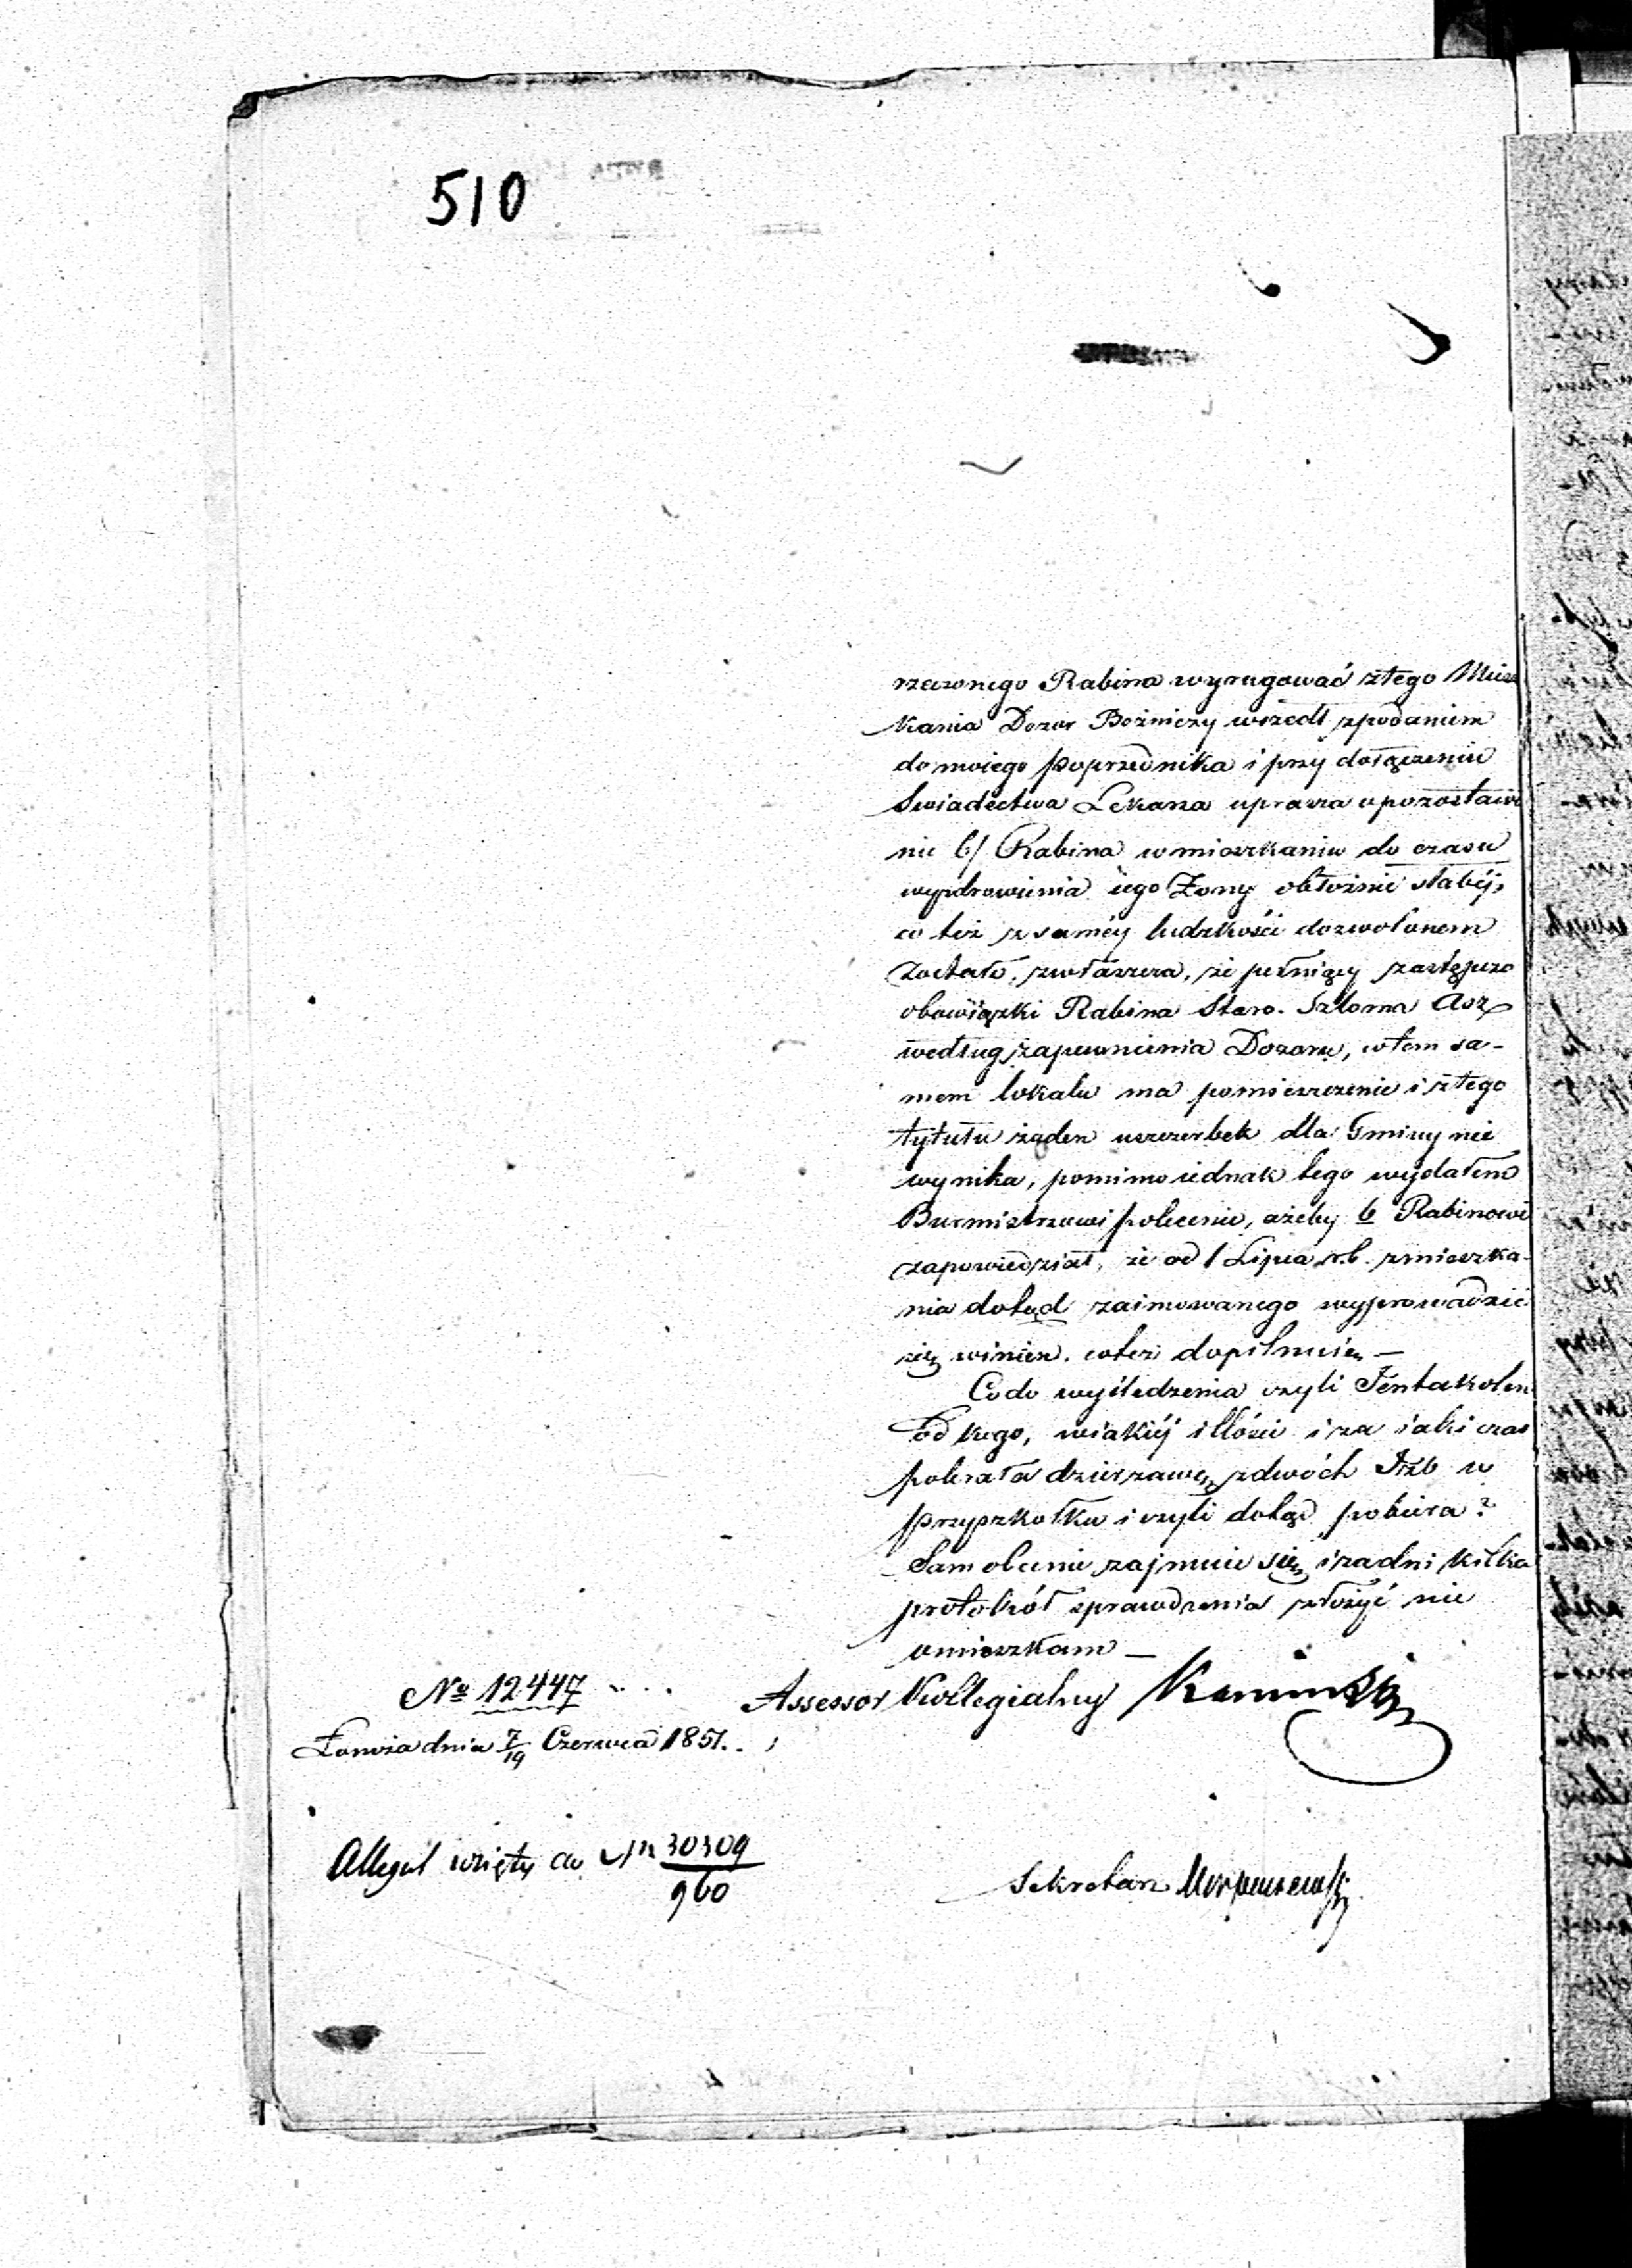 510
rzeczonego Rabina wyrugować ztego Miesz
kania Dozor Bożniczy wszedł zpodaniem
do moiego poprzednika i przy dołączeniu
Swiadectwa Lekarza uprasza o pozostawie
nie b/ Rabina wmieszkaniu do czasu
wyzdrowienia iego Żony obłożnie słabéj,
co też z saméy ludzkości dozwolonem
Zostało, zwłaszcza, że pełniący zastępczo
obowiązki Rabina Staro. Szloma Asz
według zapewnienia Dozoru, wtem sa-
mem lokalu ma pomieszczenie i ztego
tytułu żaden uszczerbek dla Gminy nie
wynika, pomimo iednak tego wydałem
Burmistrzowi polecenie, ażeby b Rabinowi
zapowiedział, że od 1 Lipca r.b. zmieszka-
nia dotąd zaimowanego wyprowadzić
się winien. cotez dopilnuię —
Codo wyśledzenia czyli Jentakolen
od kogo, wiakiéj ilłości i za iaki czas
pobrała dzierzawę zdwóch Izb w
przyszkołku i czyli dotąd pobiera?
Sam obecnie zajmuie się i zadni kilka
protokół sprawdzenia złożyć nie
omieszkam —
Assessor Kollegialny Kamiński
№ 12447
Łomża dnia 7/19 Czerwca 1851.
Allegat wzięty do № 30309/960
Sekretarz